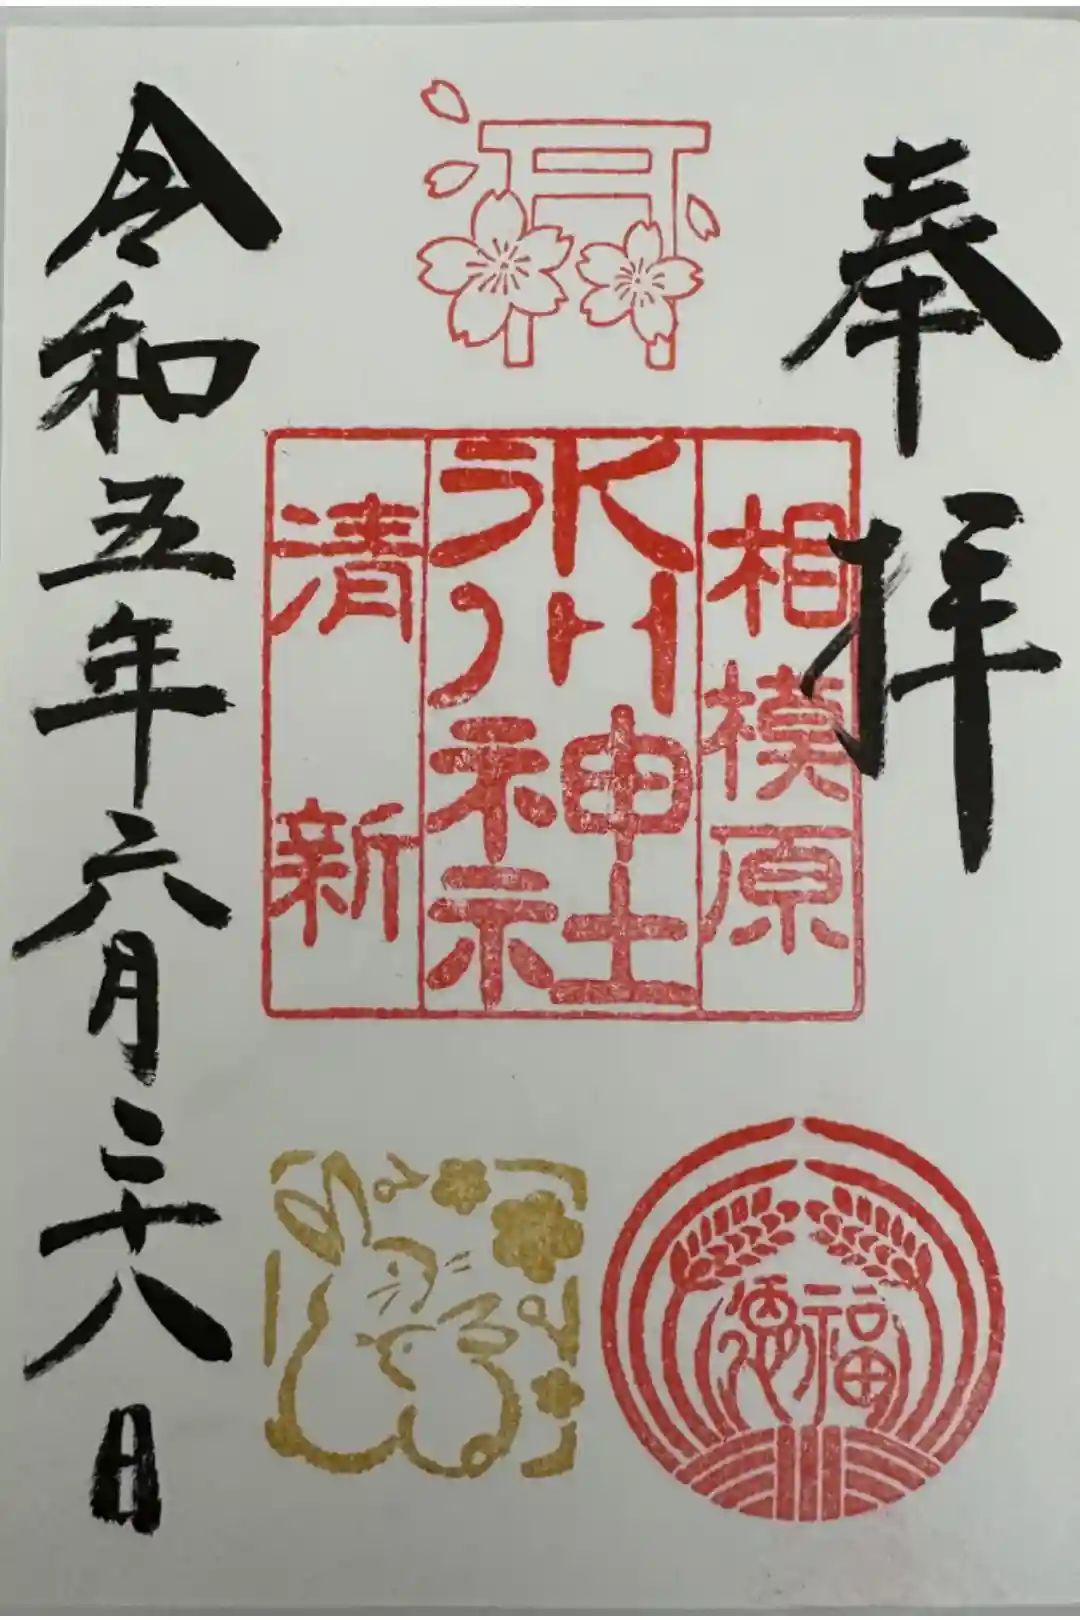 奉拝
相模原
氷川神社
清新
福徳
令和五年六月二十八日